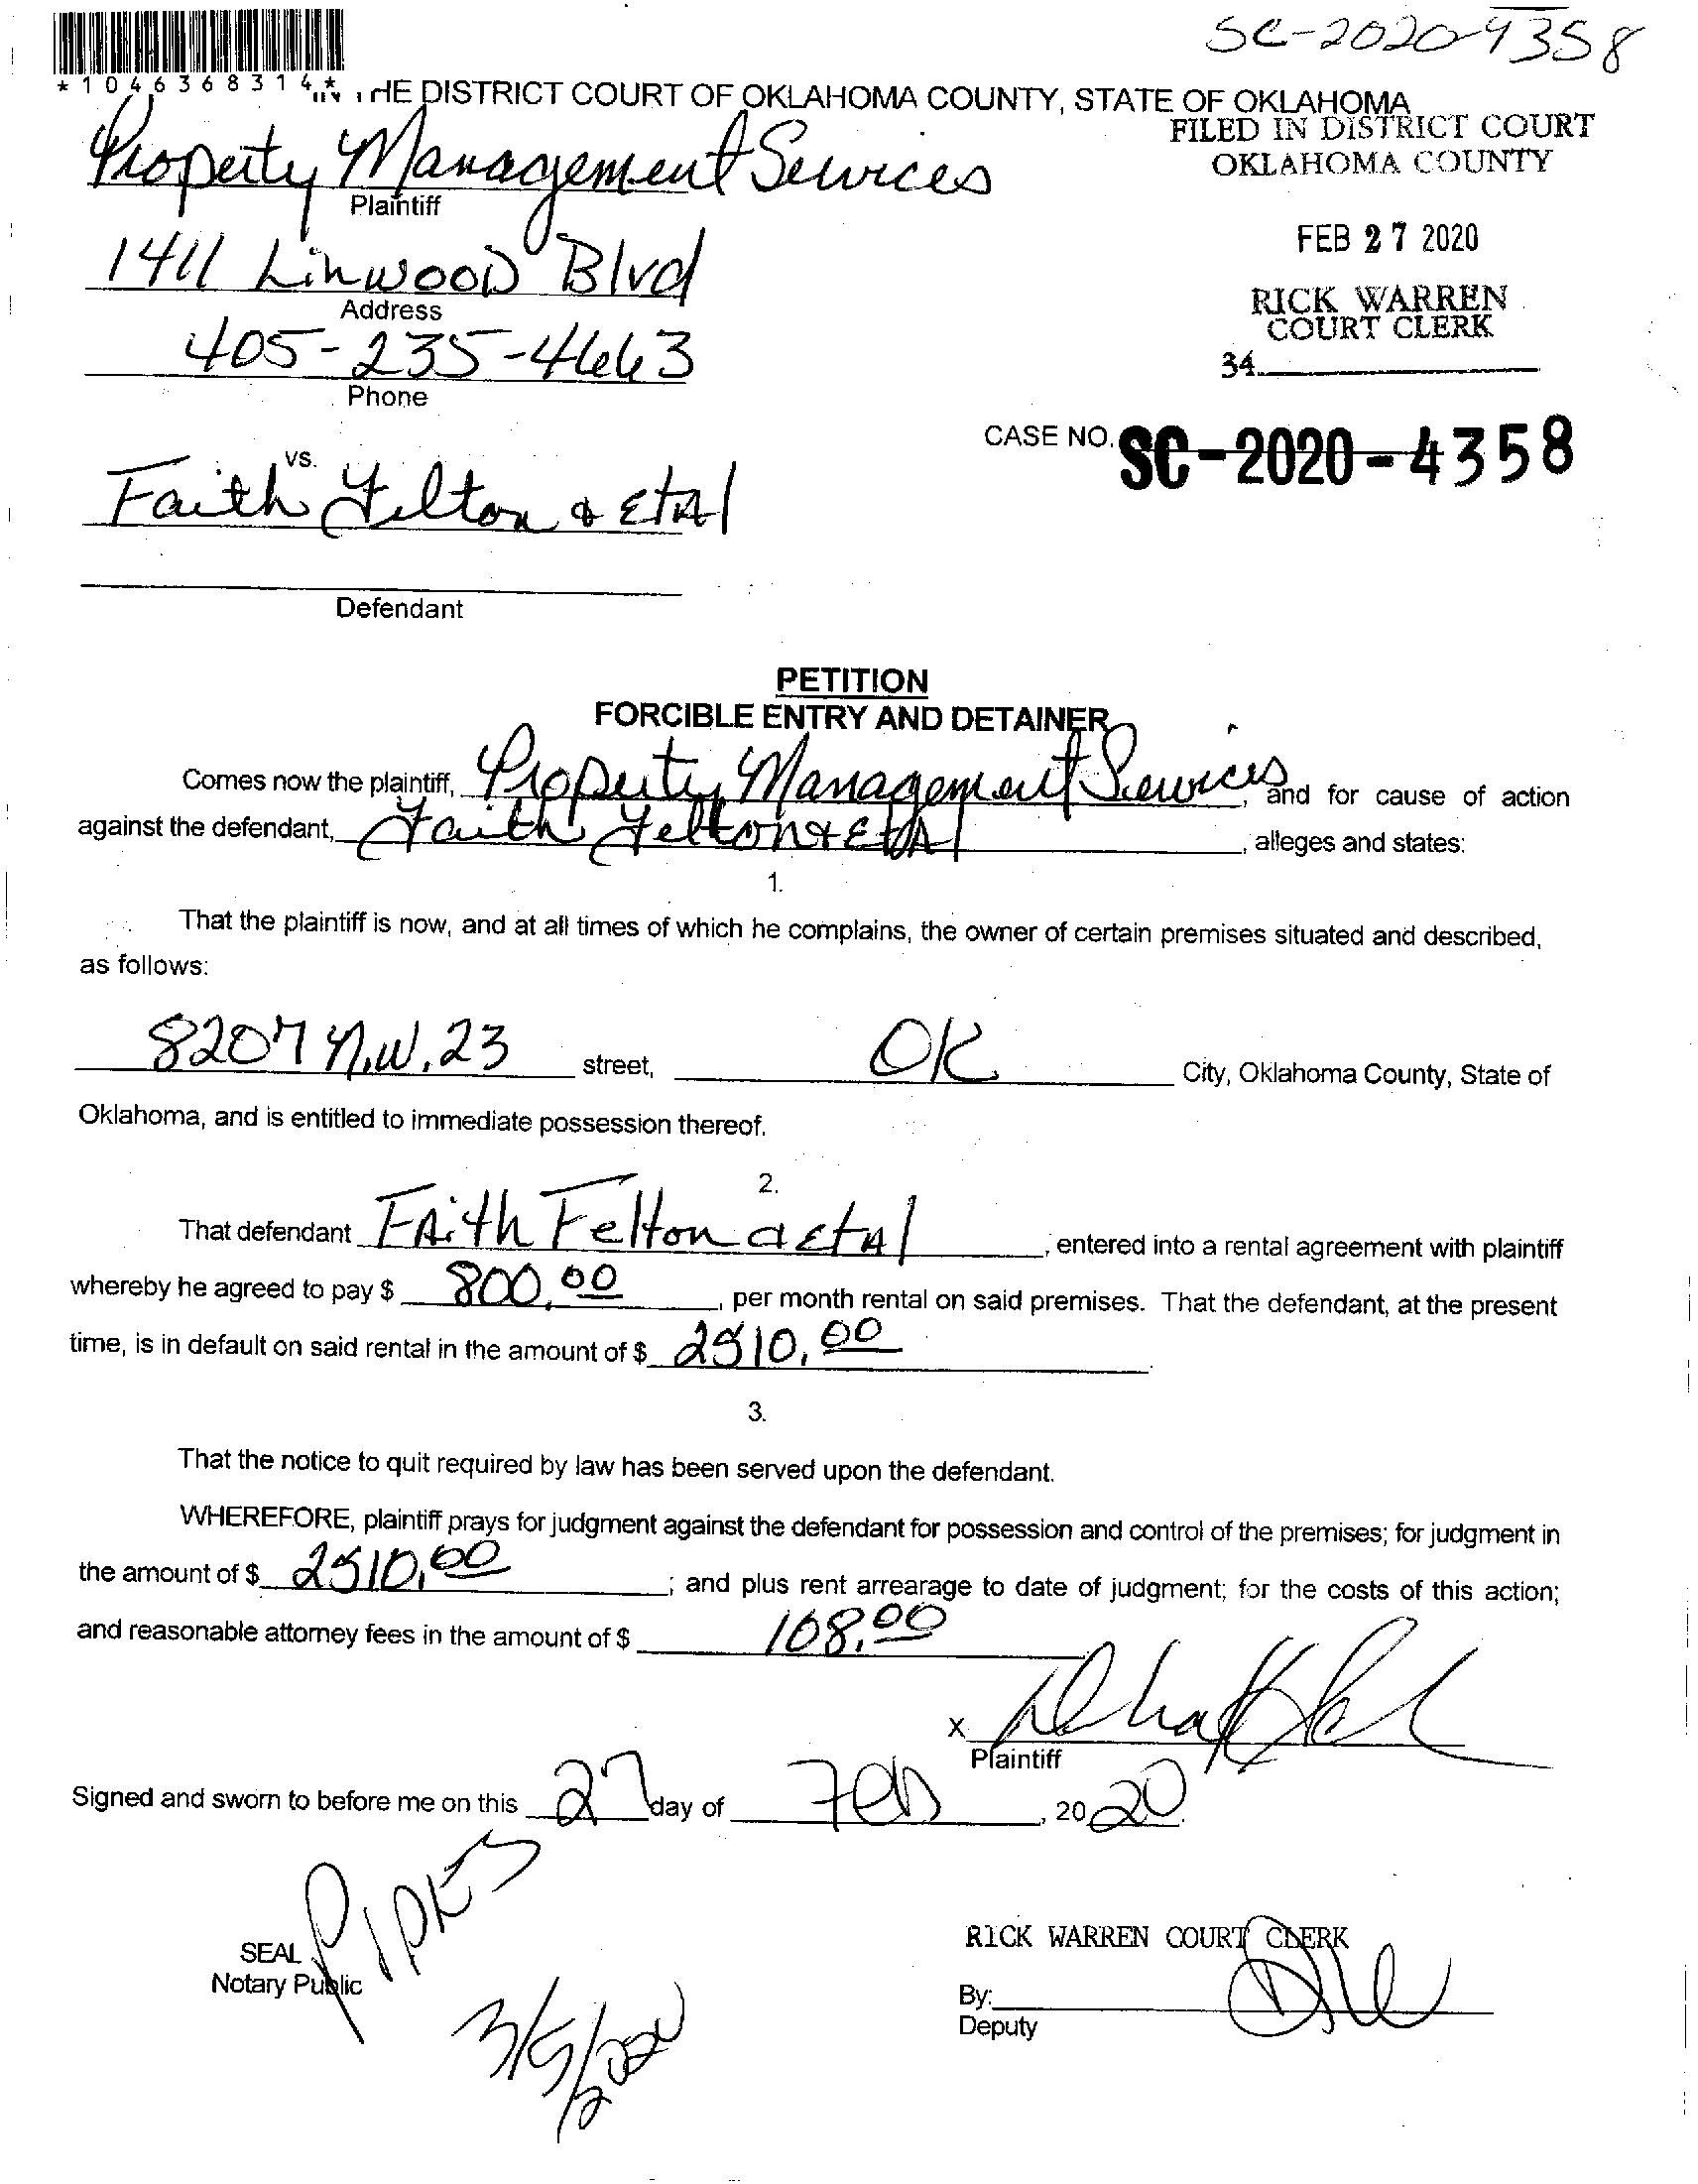 SC-2020-4358
*1046368314*
HE DISTRICT COURT OF OKLAHOMA COUNTY, STATE OF OKLAHOMA
FILED IN DISTRICT COURT
OKLAHOMA COUNTY
Property Management Services
Plaintiff
FEB 27 2020
1411 Linwood Blvd
Address
RICK WARREN
COURT CLERK
405-235-4663
34
Phone
CASE NO. SC-2020-4358
vs.
Faith Felton & EtAl
Defendant
PETITION
FORCIBLE ENTRY AND DETAINER
Comes now the plaintiff, Property Management Services, and for cause of action
against the defendant, Faith Felton & EtAl, alleges and states:
1.
That the plaintiff is now, and at all times of which he complains, the owner of certain premises situated and described,
as follows:
8207 N.W. 23 street, OK City, Oklahoma County, State of
Oklahoma, and is entitled to immediate possession thereof.
2.
That defendant FAith Felton & EtAl, entered into a rental agreement with plaintiff
whereby he agreed to pay $ 800.00, per month rental on said premises. That the defendant, at the present
time, is in default on said rental in the amount of $ 2510.00
3.
That the notice to quit required by law has been served upon the defendant.
WHEREFORE, plaintiff prays for judgment against the defendant for possession and control of the premises; for judgment in
the amount of $ 2510.00; and plus rent arrearage to date of judgment; for the costs of this action;
and reasonable attorney fees in the amount of $ 168.00
X
Plaintiff
Signed and sworn to before me on this 27 day of Feb, 2020.
SEAL
Notary Public
RICK WARREN COURT CLERK
By:
Deputy